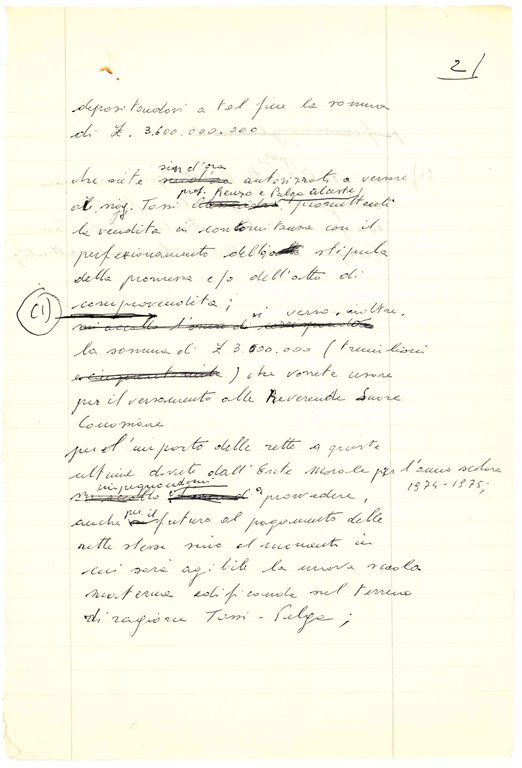 2/
depositandovi a tal fine la somma
di £. 3.600.000.000
sin d'ora
che siete autorizzati a versare
prof. Renzo e Pulga Alceste,
al sig. Tassi promittenti
la vendita in contomitanza con il
perfezionamento della stipula
della promessa e/o dell'atto di
compravendita;
(1)
vi verso, inoltre,
la somma di £ 3.600.000 (tremilioni
) che vorrete usare
per il versamento alle Reverende Suore
Canossiane
per l'importo delle rette a queste
ultime dovute dall'Ente Morale per l'anno scolare
1974-1975;
impegnandomi
a provvedere,
per il
anche futuro al pagamento delle
rette stesse sino al momento in
cui sarà agibile la nuova scuola
materna edificanda sul terreno
di ragione Tassi - Pulga;